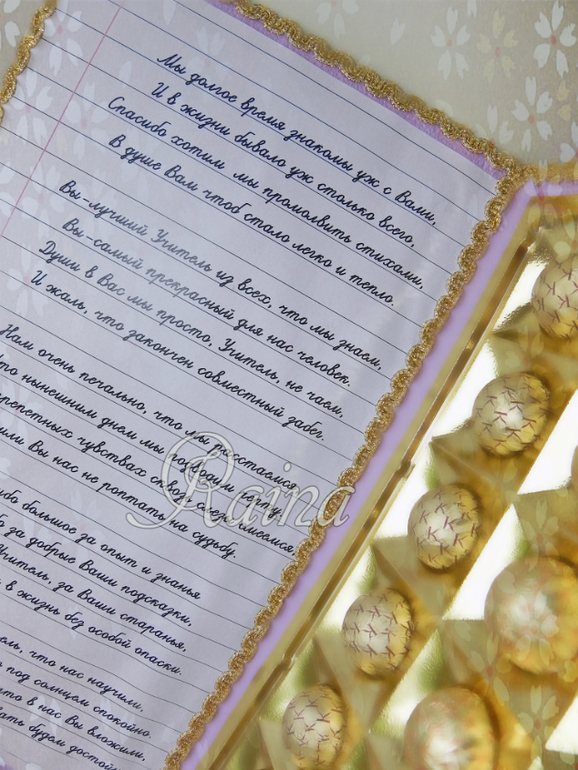 Мы долгое время знакомы уж с Вами,
И в жизни бывало уж столько всего,
Спасибо хотим мы промолвить стихами,
В душе Вам чтоб стало легко и тепло.
Вы-лучший Учитель из всех, что мы знаем,
Вы-самый прекрасный для нас человек,
Души в Вас мы просто, Учитель, не чаем,
И жаль, что закончен совместный забег.
Нам очень печально, что мы расстаемся,
нынешним днем мы
чувствах
Вы нас не роптать на судьбу.
большое за опыт и знанья
за добрые Ваши подсказки,
Учитель, за Ваши старанья,
в жизнь без особой опаски.
что нас научили,
под солнцем спокойно,
что в нас Вы вложили,
будем
Raina